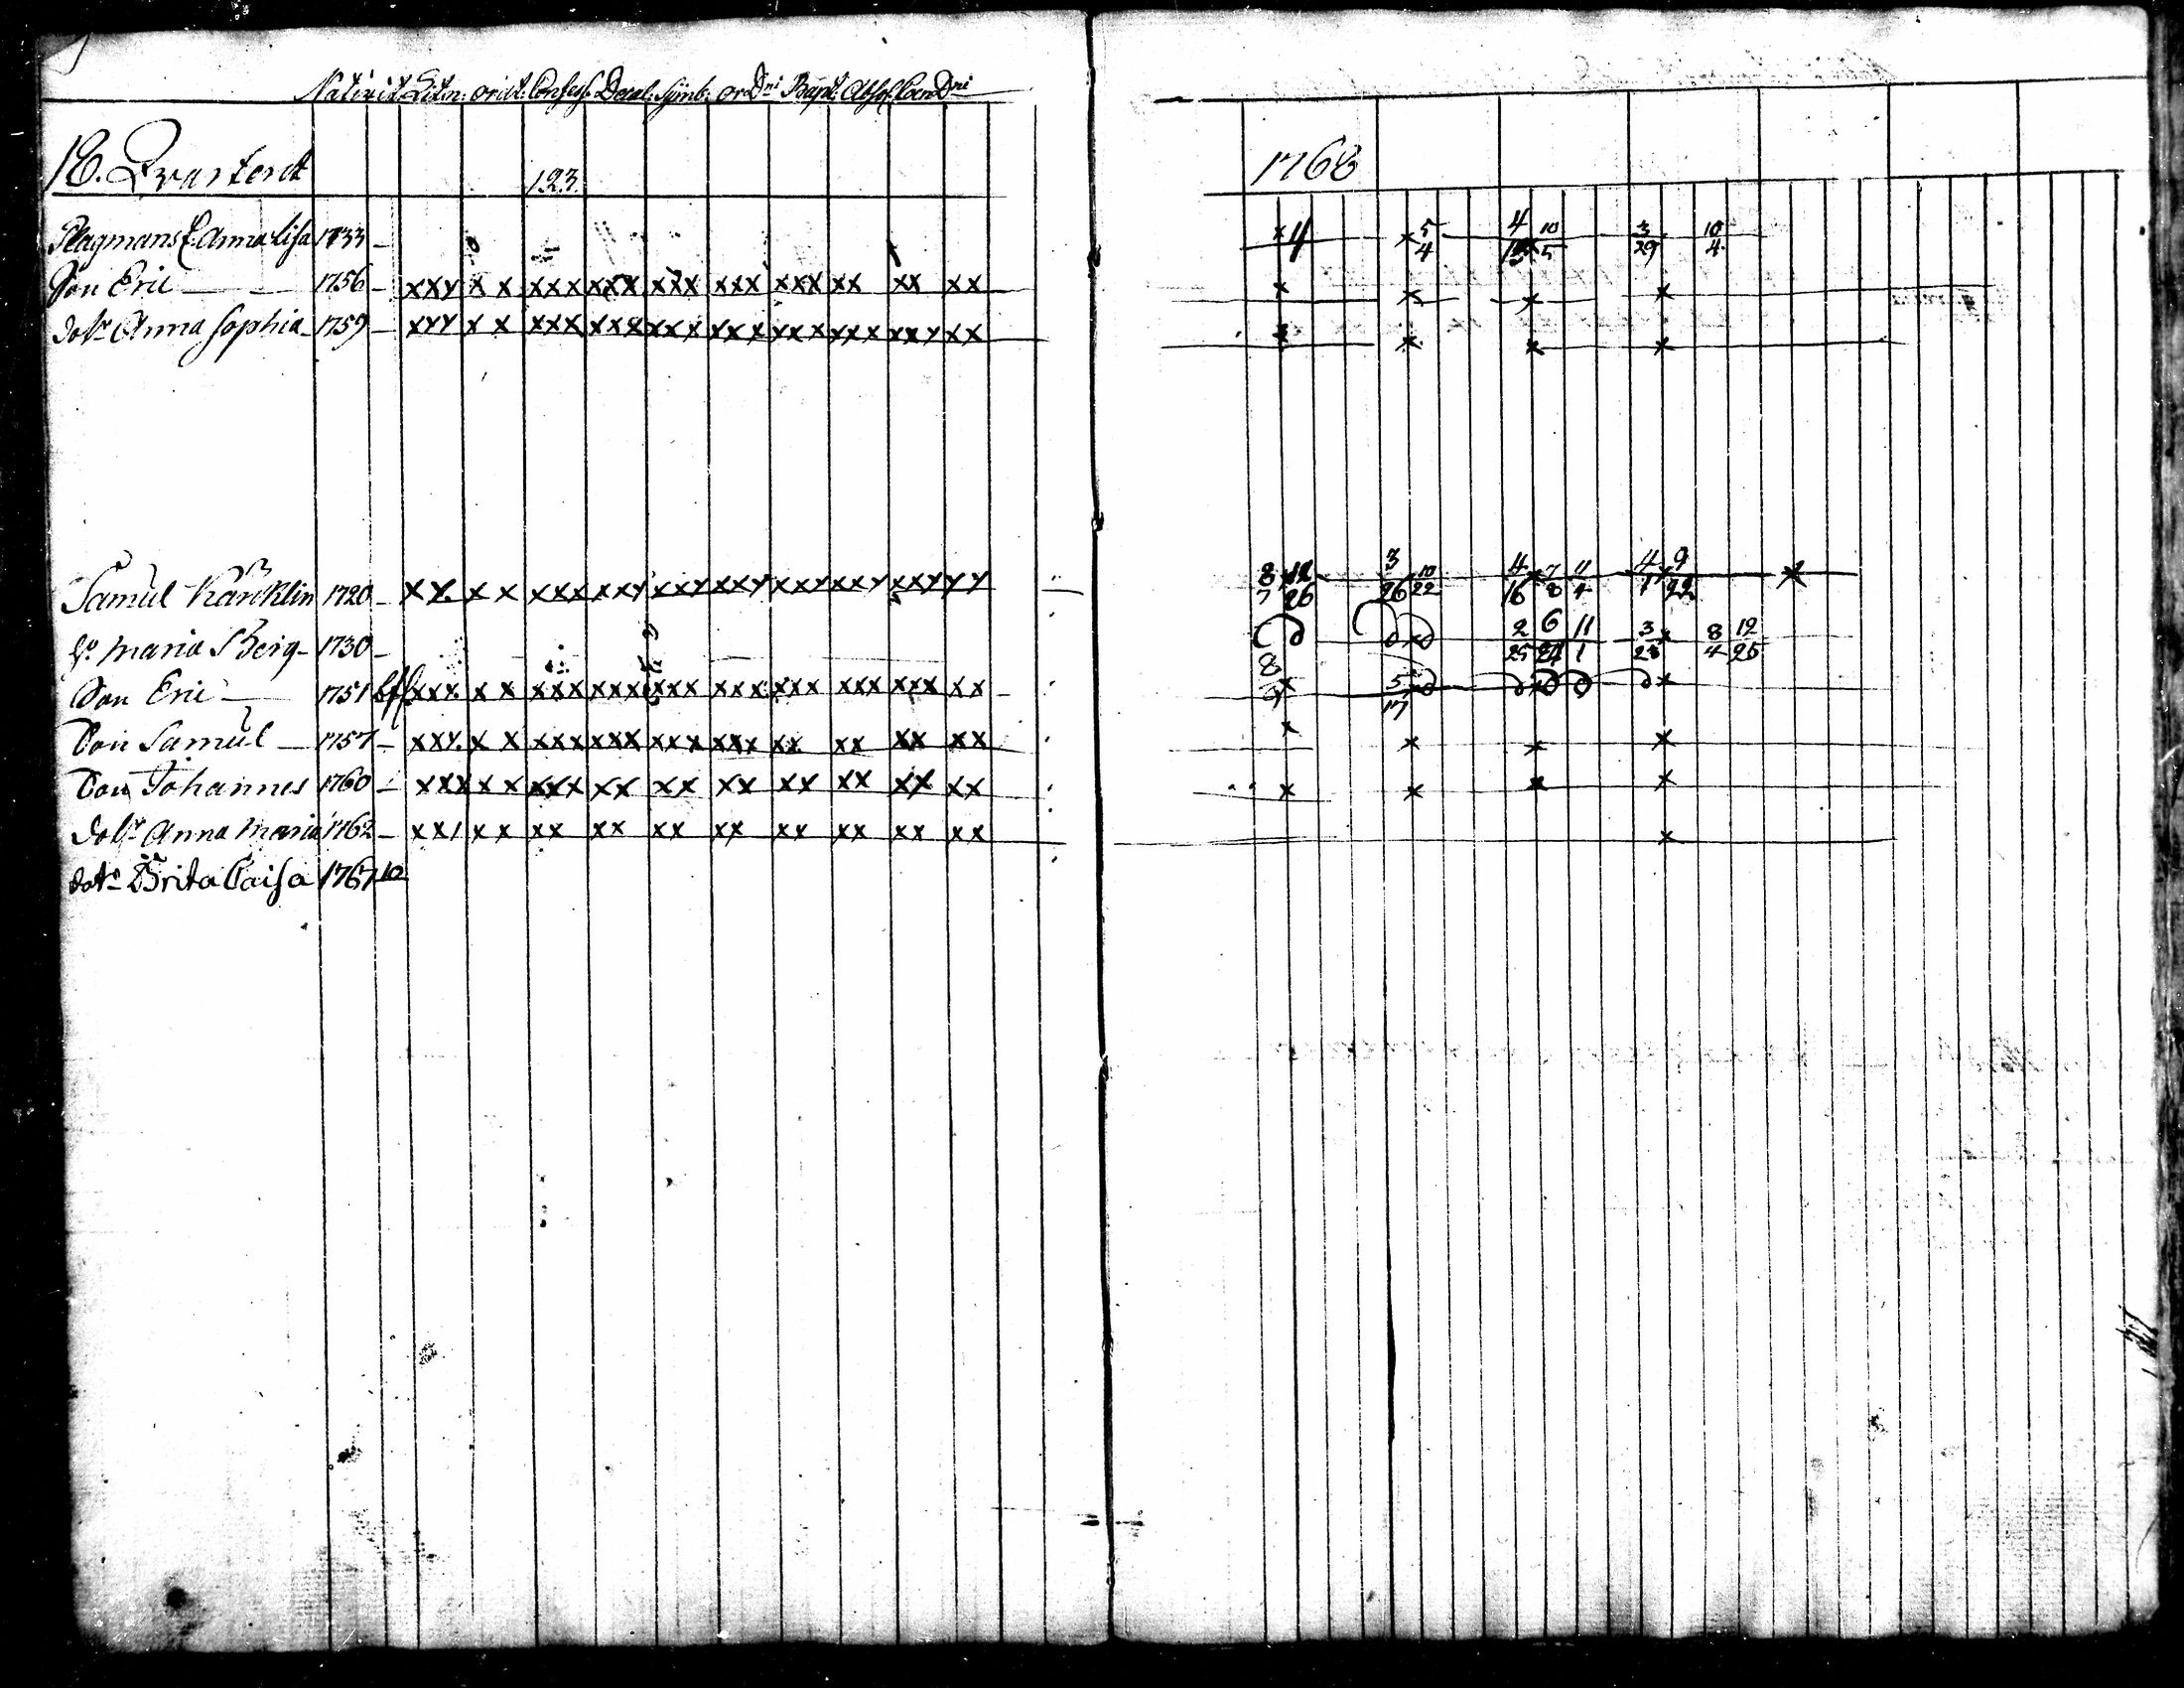 Nativit Litn. orat. Confess. Decal. Symb. or Dni Bapt. Absol. Coen Dni
18. Qvarteret 123 1768
Anna Lisa 1733 – x 4 x 5/4 4 10/5 3/29 10/4
Son Eric — — 1756 – xxy x x xxx xxx xxx xxx xxx xx xx xx x x x x
dotr Anna Sophia 1759 – xyy x x xxx xxx xxx xxx xxx xxx xxy xx x x x x
Samul 1720 – x x x x xxx xxy xxy xxy xxy xxy xxy yy 8/7 x 12/26 3/26 x 10/22 4/16 x 7/8 11/4 4/1 x 9/22 x
h. Maria Berg – 1730 – 2/25 6/24 11/1 3/28 x 8/4 12/26
Son Eric — 1751 xxx x x xxx xxx xxx xxx xxx xxx xxx xx 8/9 x 5/17 x x x
Son Samul — 1757 – xxy x x xxx xxx xxx xxx xx xx xx xx x x x x
Son Johannes 1760 – xxx x x xxx xx xx xx xx xx xx xx x x x x
dotr Anna Maria 1762 – xx/ x x xx xx xx xx xx xx xx xx x
dotr Brita Caisa 1767 10